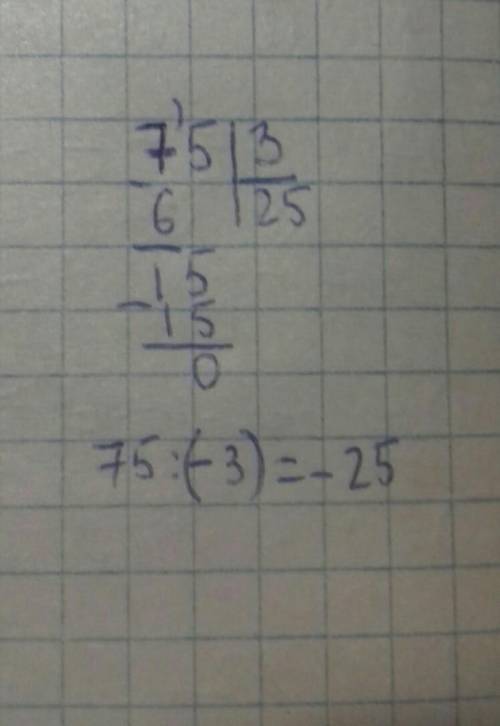 75 | 3
- 6 | 25
15
- 15
0
75:(-3)=-25